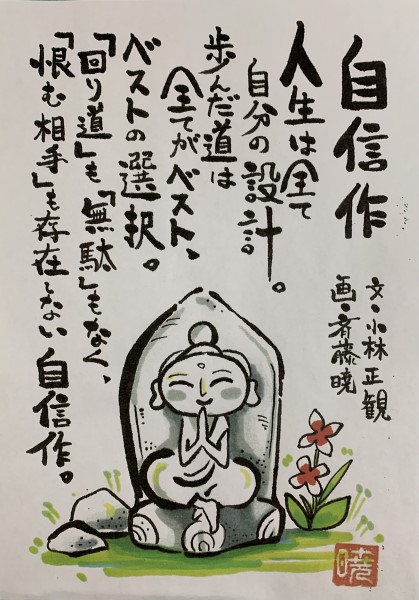 自信作
文・小林正観
画・斉藤暁
人生は全て
自分の設計。
歩んだ道は
全てがベスト、
ベストの選択。
「回り道」も「無駄」もなく、
「恨む相手」も存在しない自信作。
暁